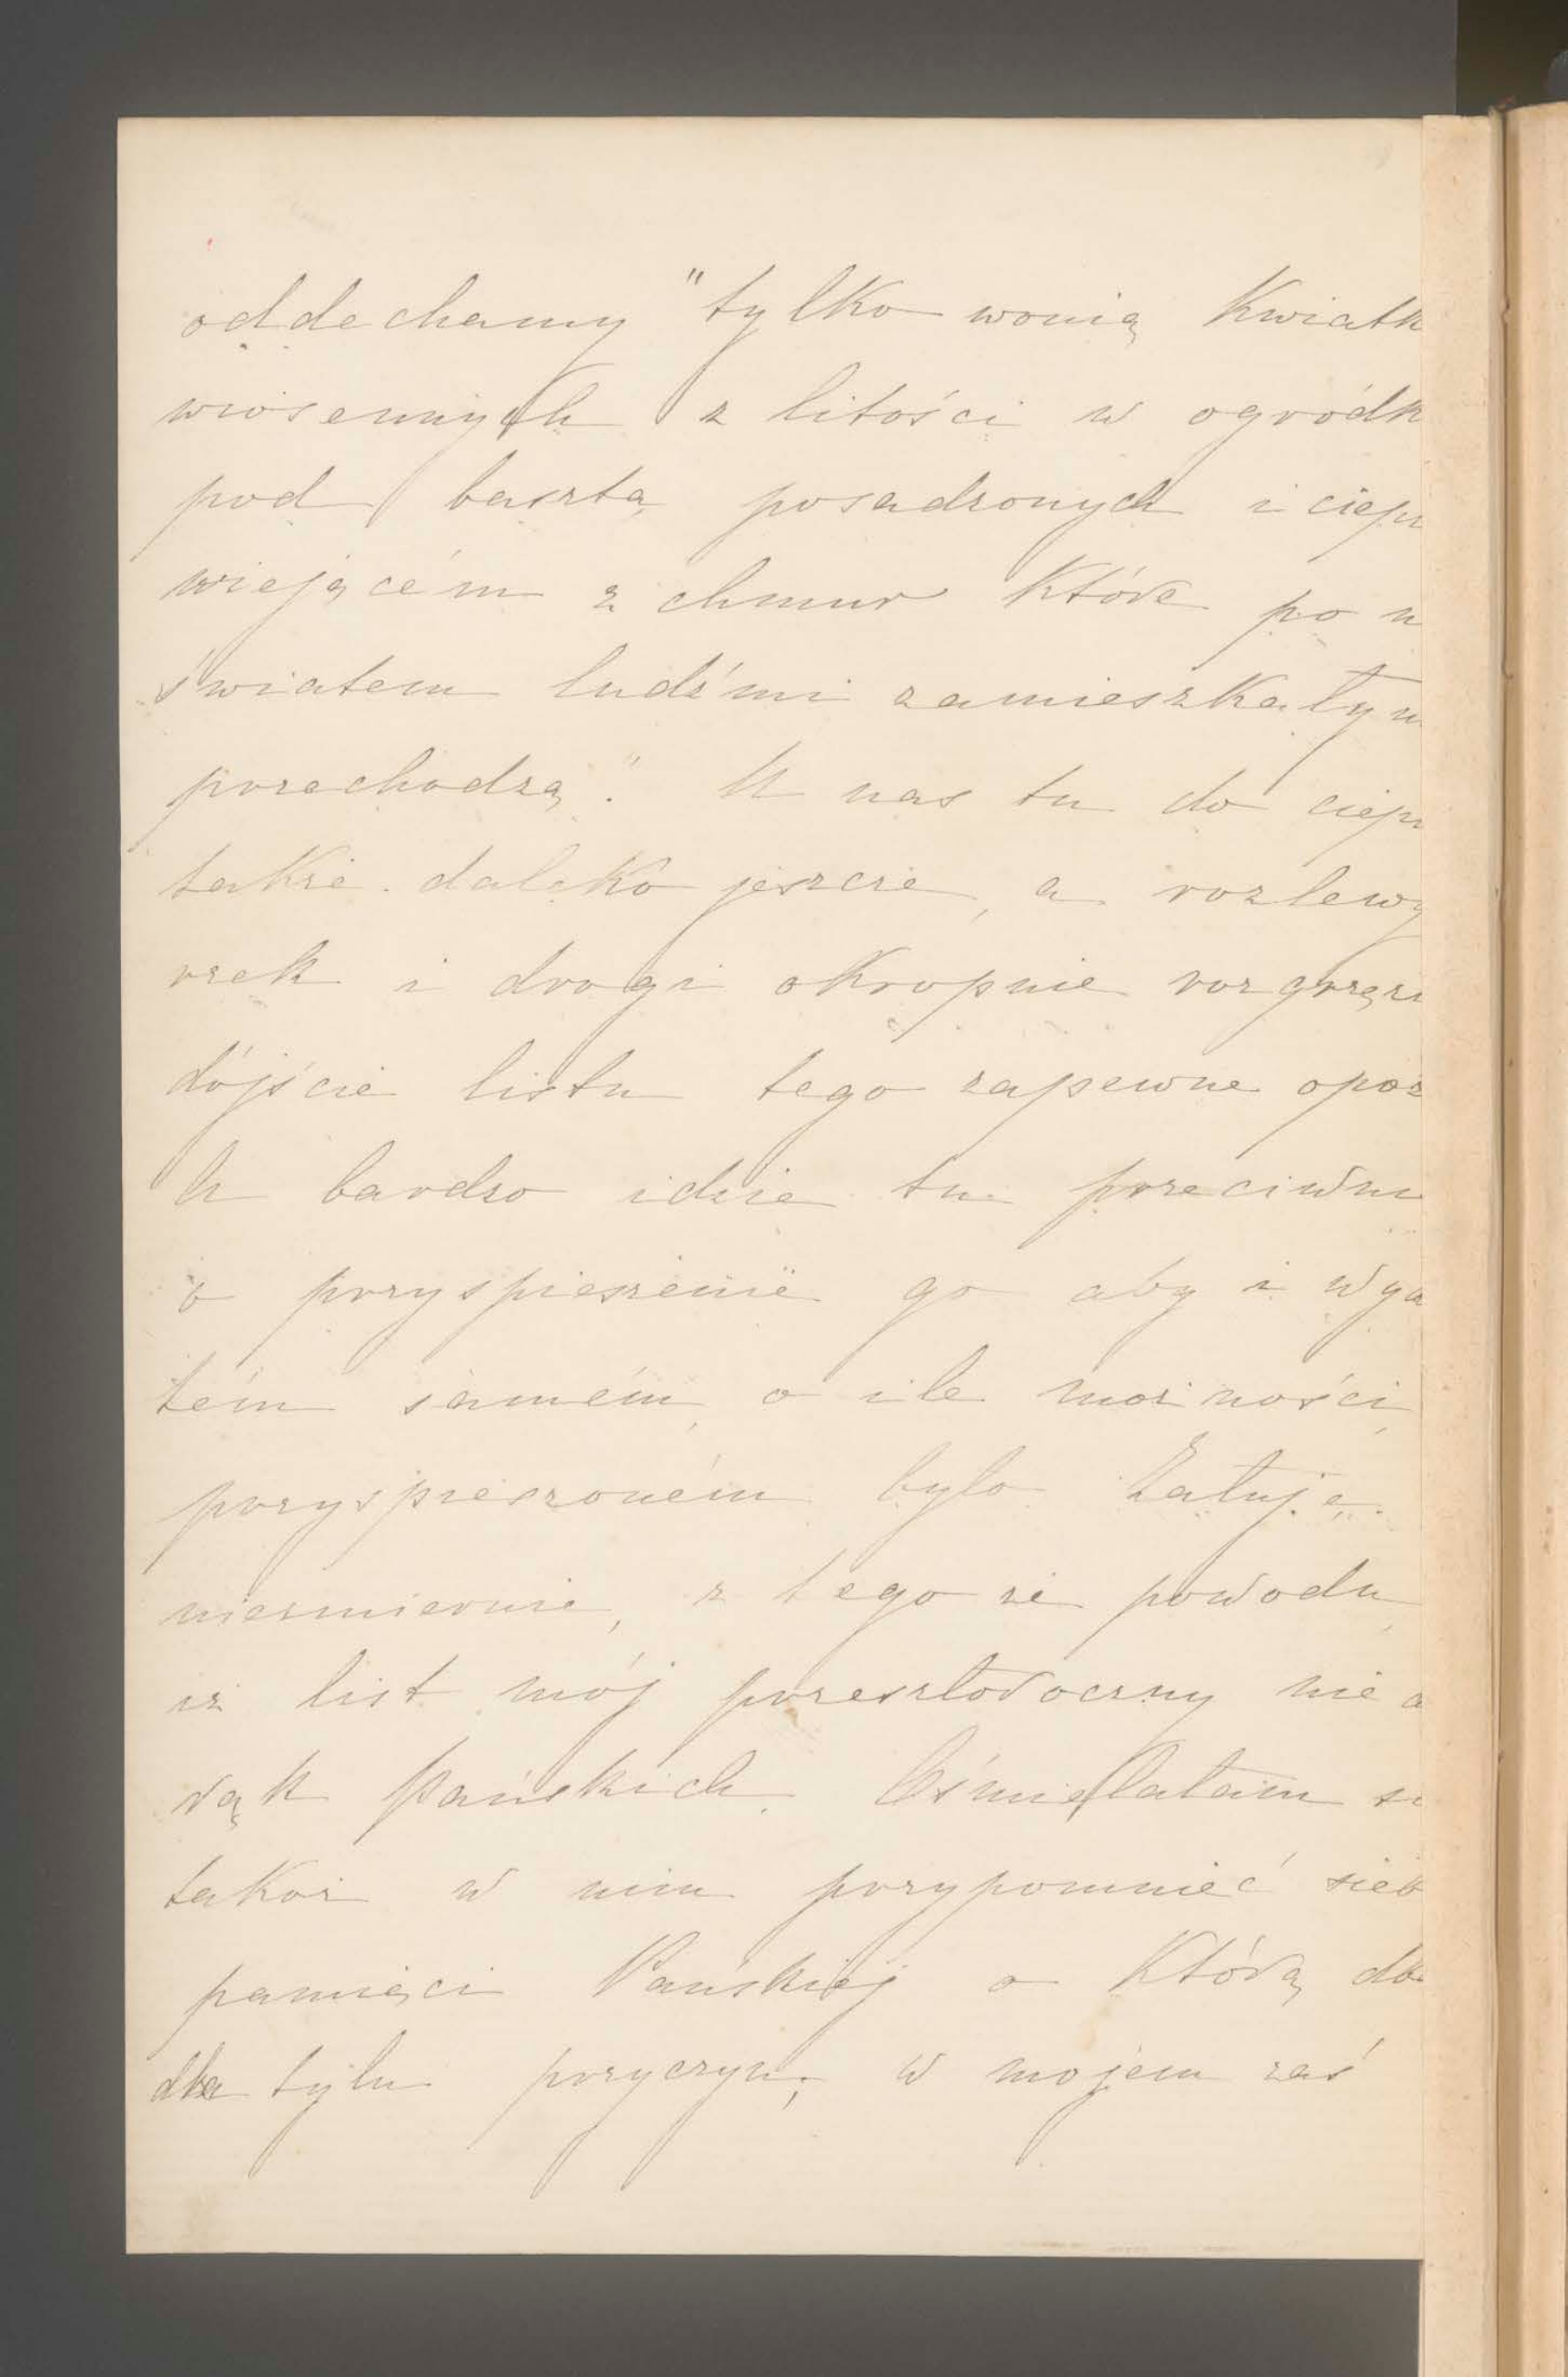 oddechamy "tylko wonią Kwiatk
wiosennych z litości w ogródk
pod basztą posadzonych i ciepł
wiejącém z chmur Które po n
światem ludźmi zamieszkałym
przechodzą". U nas tu do ciepł
także daleko jeszcze, a rozlewy
rzek i drogi okropnie rozgrzęz
dójście listu tego zapewne opoz
A bardzo idzie tu przeciwni
o przyspieszenie go aby i wya
tém samém, o ile możności,
przyspieszoném było Żałuję
niezmiernie, z tego że powodu,
iż list mój przeszłoroczny nie d
rąk Pańskich. Ośmielałam si
takoż w nim przypomnieć sieb
pamięci Pańskiej o Którą db
dla tylu przyczyn; w mojem zaś